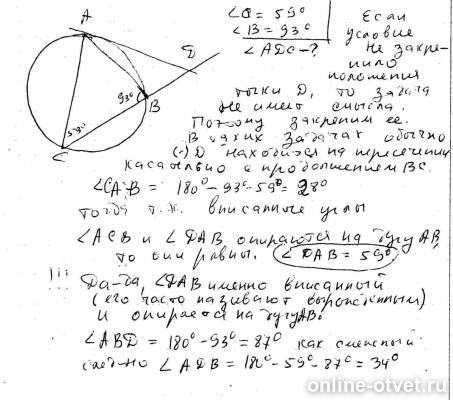 ∠C = 59°
∠B = 93°
∠ADC - ?
Если
условие
не закре-
пило
положения
точки D, то задача
не имеет смысла.
Поэтому закрепим ее.
В таких задачах обычно
(·) D находится на пересечении
касательно с продолжением BC.
A
D
93°
B
59°
C
∠CAB = 180° - 93° - 59° = 28°
тогда т.к. вписанные углы
∠ACB и ∠DAB опираются на дугу AB,
то они равны. ∠DAB = 59°
!!! Да-да, ∠DAB именно вписанный
(его часто называют вырожденным)
и опирается на дугу AB.
∠ABD = 180° - 93° = 87° как смежный
∠ADB = 180° - 59° - 87° = 34°
online-otvet.ru